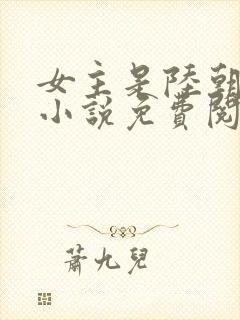 女主是陸朝
小說免費閱
蕭九兒